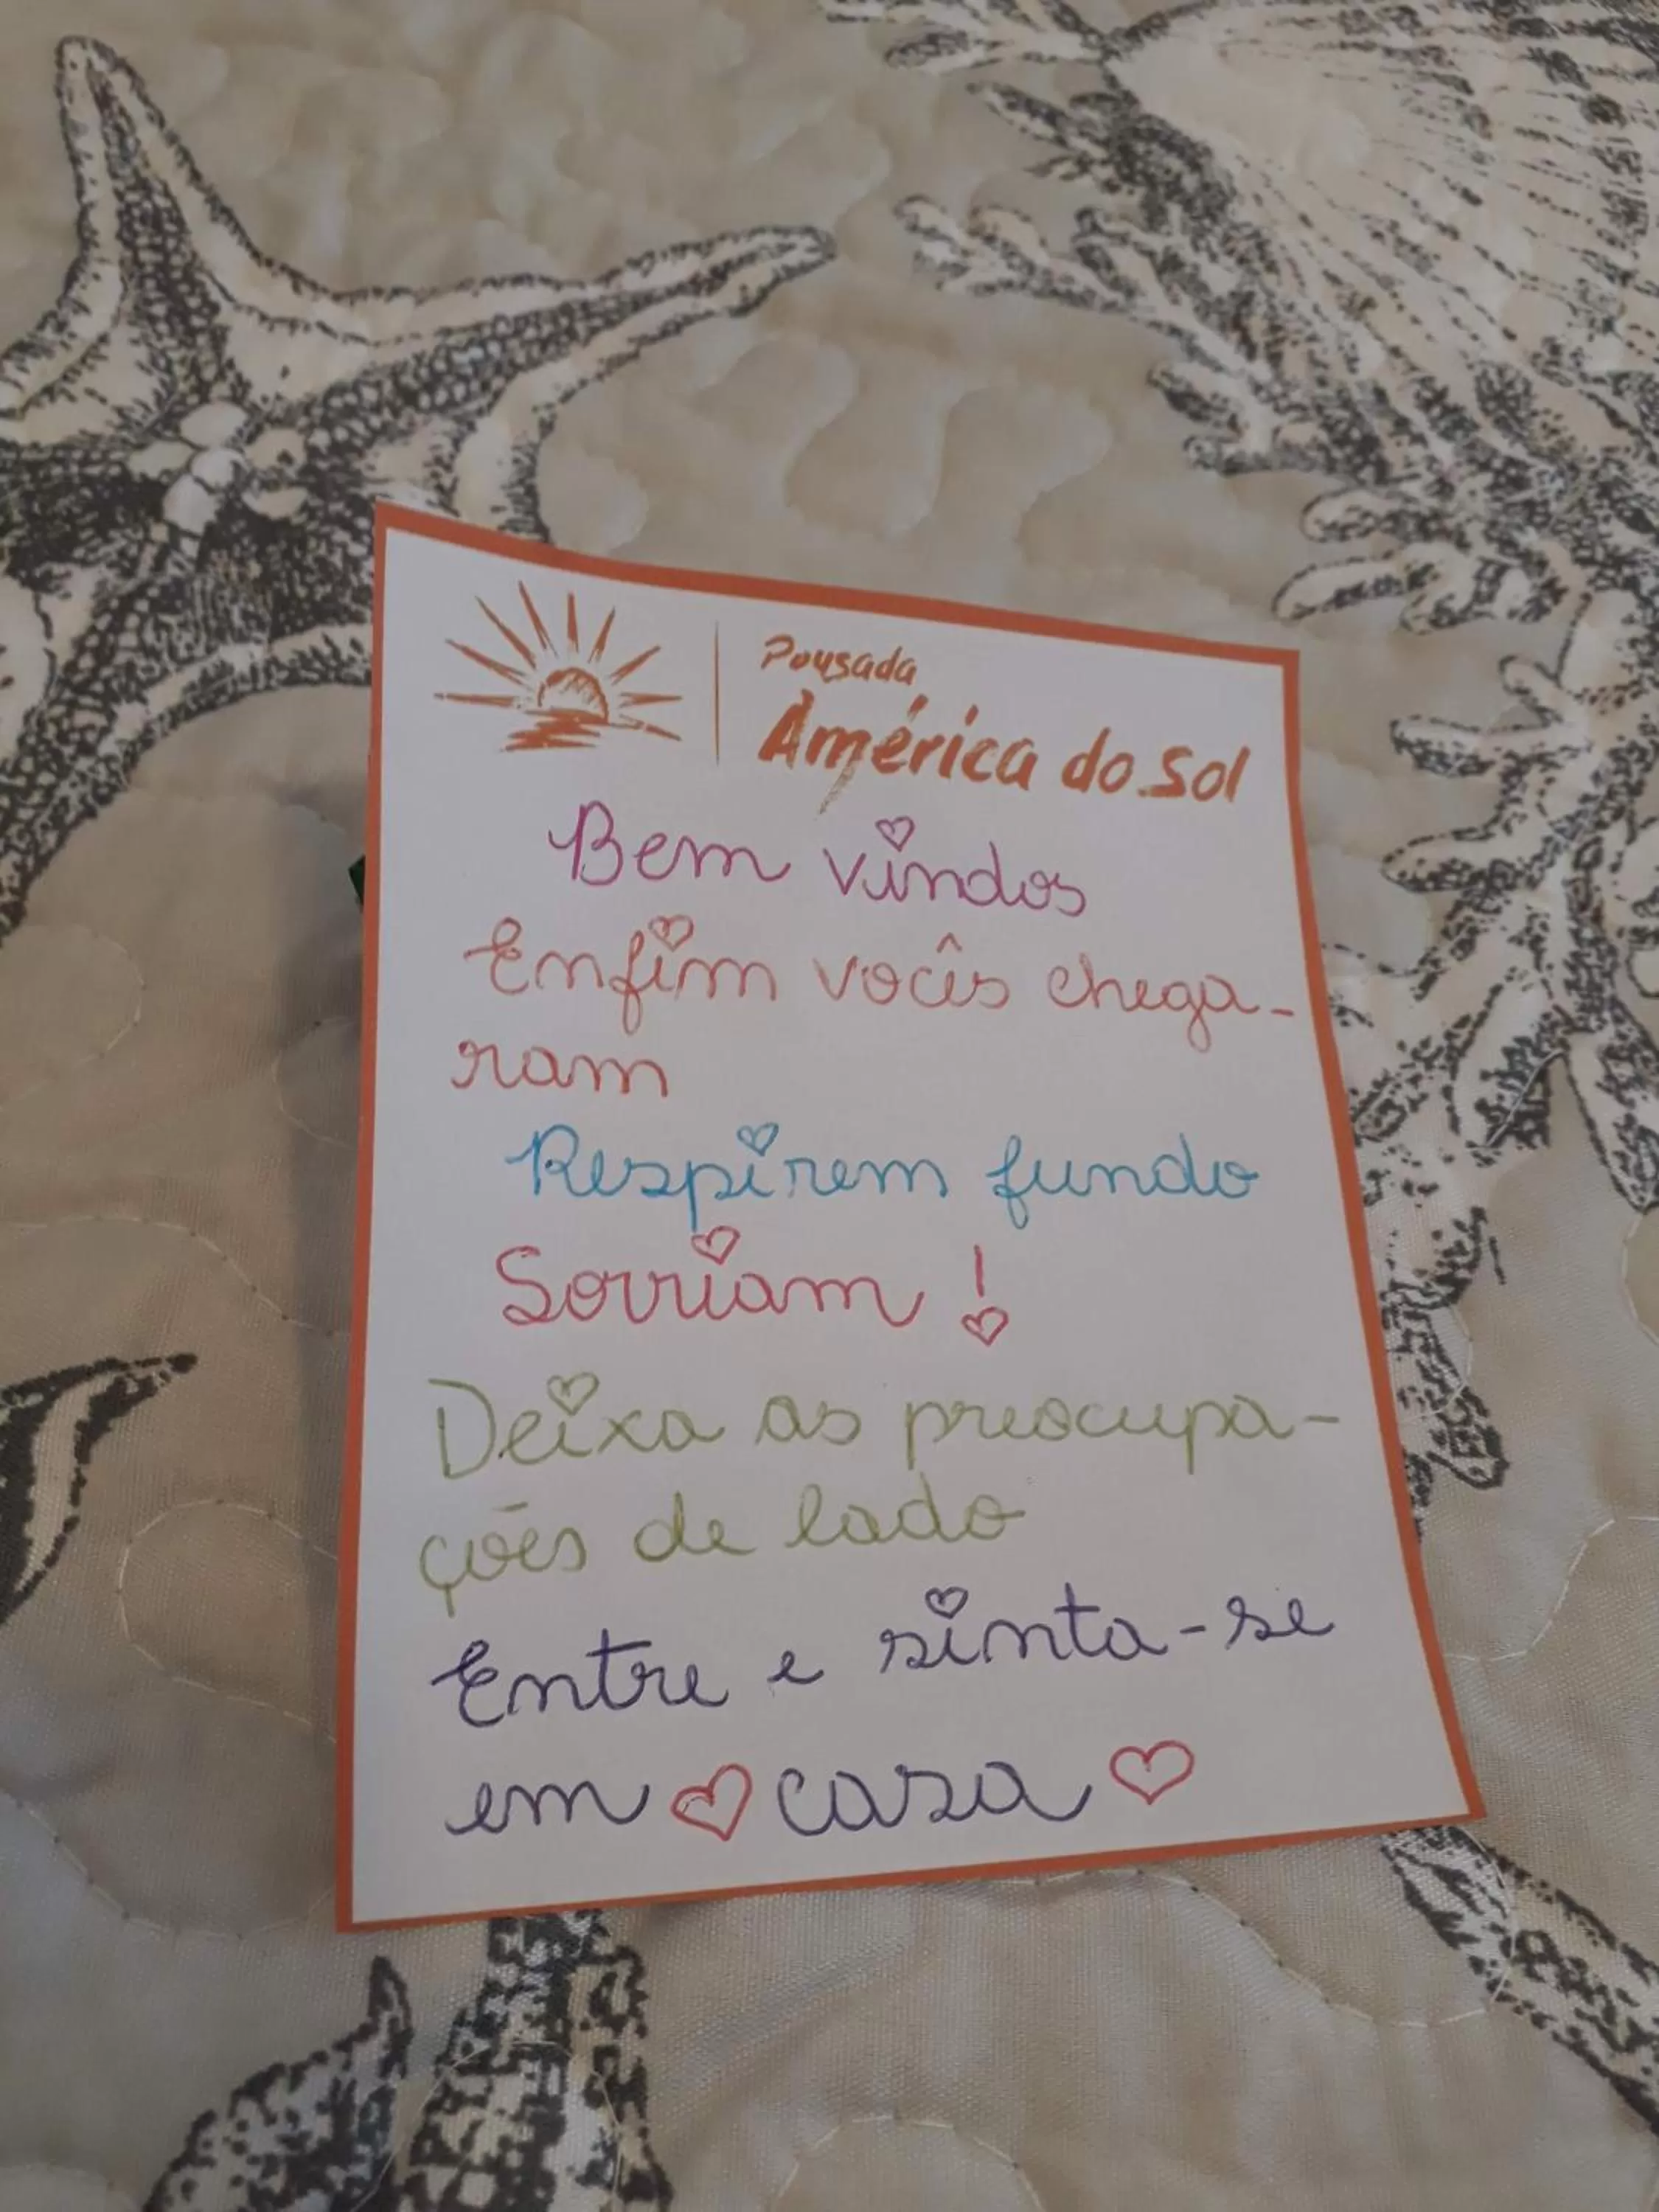 Pousada
América do Sol
Bem vindos
Enfim vocês chega-
ram
Respirem fundo
Sorriam!
Deixa as preocupa-
ções de lado
Entre e sinta-se
em casa